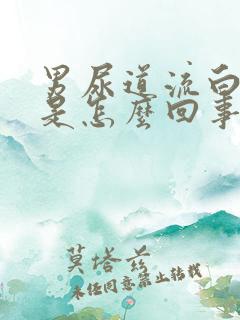 男尿道流白
是怎麼回事
莫塔兹
未经同意禁止转载